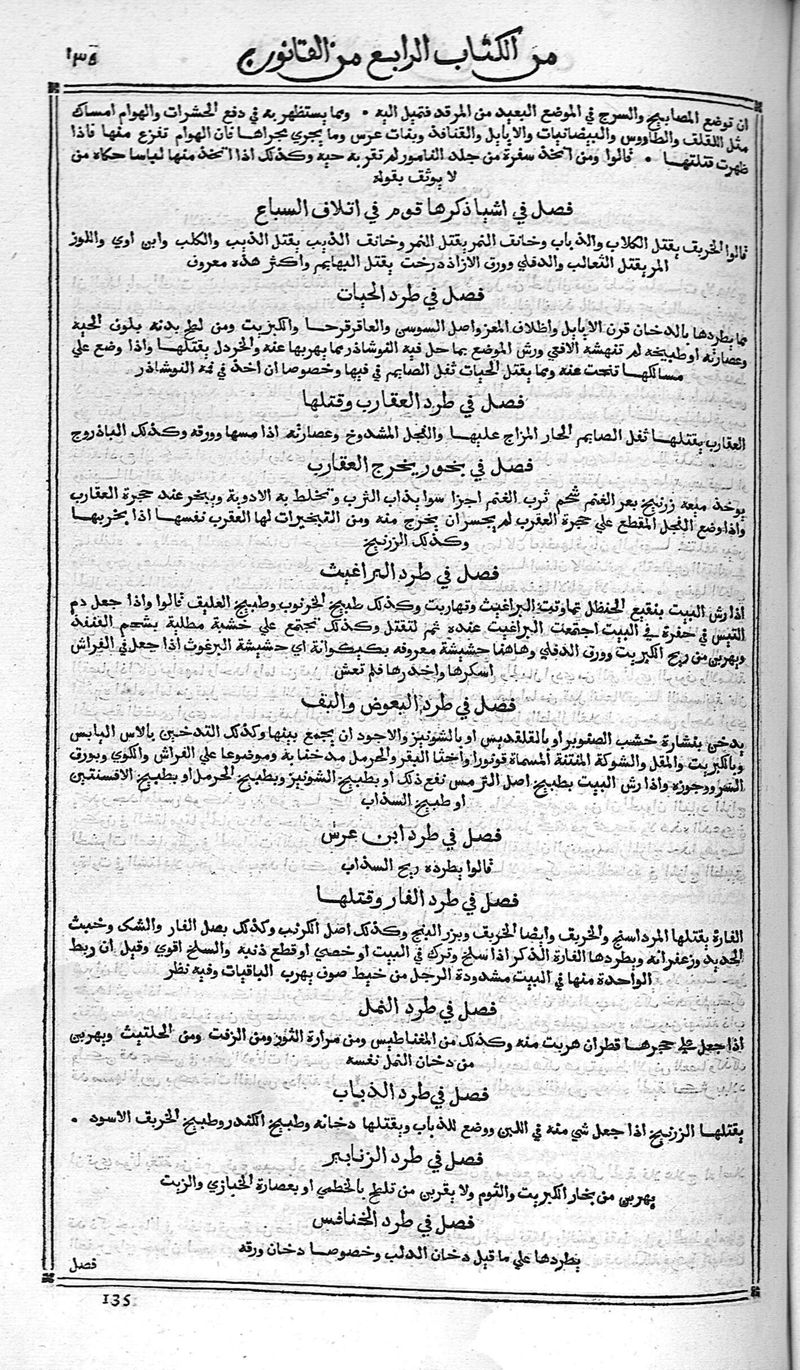 من الكتاب الرابع من القانون ١٣٥
ان توضع المصابيح والسرج في الموضع البعيد من المرقد فتميل اليه • ومما يستظهر به في دفع الحشرات والهوام امساك
مثل اللقلف والطاووس والبيضانيات والايايل والقنافذ وبنات عرس وما يجري مجراها فان الهوام تفزع منها فاذا
ظهرت قتلتها • قالوا ومن اتخذ سفرة من جلد النامور لم تقربه حية وكذلك اذا اتخذ منها لباسا حكاه من
لا يوثف بقوله
فصل في اشيا ذكرها قوم في اتلاف السباع
قالوا الخربف يقتل الكلاب والذياب وخانف النمر يقتل النمر وخانف الذيب يقتل الذيب والكلب وابن اوي واللوز
المر يقتل الثعالب والدفلي وورق الازاذدرخت يقتل البهايم واكثر هذه معروف
فصل في طرد الحيات
مما يطردها بالدخان قرن الايايل واظلاف المعز واصل السوسن والعاقرقرحا والكبريت ومن لطخ بدنه بلون الحية
وعصارته او طبيخه لم تنهشه الافعي ورش الموضع بما حل فيه النوشاذر مما يهربها عنه والخردل يقتلها واذا وضع علي
مسالكها تنحت عنه ومما يقتل الحيات تفل الصايم في فيها وخصوصا ان اخذ في فمه النوشاذر
فصل في طرد العقارب وقتلها
العقارب يقتلها تفل الصايم الحار المزاج عليها والفجل المشدوخ وعصارته اذا مسها وورقه وكذلك الباذروج
فصل في بخور يخرج العقارب
يوخذ ميعة زرنيخ بعر الغنم شحم ثرب الغنم اجزا سوا يذاب الثرب وتخلط به الادوية ويبخر عند حجرة العقارب
واذا وضع الفجل المقطع علي حجرة العقرب لم يجسر ان يخرج منه ومن التبخيرات لها العقرب نفسها اذا بخر بها
وكذلك الزرنيخ
فصل في طرد البراغيث
اذا رش البيت بنقيع الحنظل تماوتت البراغيث وتهاربت وكذلك طبيخ الخرنوب وطبيخ العليف قالوا واذا جعل دم
التيس في حفرة في البيت اجتمعت البراغيث عنده ثم لتقتل وكذلك تجتمع علي خشبة مطلية بشحم القنفذ
ويهربن من ريح الكبريت وورق الدفلي وهاهنا حشيشة معروفه بكيكوانة اي حشيشة البرغوث اذا جعل في الفراش
اسكرها واخدرها فلم تعش
فصل في طرد البعوض والبف
يدخن بنشارة خشب الصنوبر او بالقلقديس او بالشونيز والاجود ان يجمع بينها وكذلك التدخين بالاس اليابس
وبالكبريت والمقل والشوكة المنتنة المسماة قونورا واخثا البقر والحرمل مدخنا به وموضوعا علي الفراش والكوي وبورق
السرو وجوزه واذا رش البيت بطبيخ اصل الترمس نفع ذلك او بطبيخ الشونيز وبطبيخ الحرمل او بطبيخ الافسنتين
او طبيخ السذاب
فصل في طرد ابن عرش
قالوا يطرده ريح السذاب
فصل في طرد الفار وقتلها
الفارة يقتلها المرداسنج والخربف وايضا الخربف وبزر البنج وكذلك اصل الكرنب وكذلك بصل الفار والشك وخبث
الحديد وزعفرانه ويطردها الفارة الذكر اذا سلخ وترك في البيت او خصي او قطع ذنبه والسلخ اقوي وقيل ان ربط
الواحدة منها في البيت مشدودة الرجل من خيط صوف يهرب الباقيات وفيه نظر
فصل في طرد النمل
اذا جعل علي حجرها قطران هربت منه وكذلك من المغناطيس ومن مرارة الثور ومن الزفت ومن الحلتيث ويهربن
من دخان النمل نفسه
فصل في طرد الذياب
يقتلها الزرنيخ اذا جعل شي منه في اللبن ووضع للذباب ويقتلها دخانه وطبيخ الكندر وطبيخ الخربف الاسود •
فصل في طرد الزنابير
يهربن من بخار الكبريت والثوم ولا يقربن من تلطخ بالخطمي او بعصارة الخبازي والزيت
فصل في طرد الخنافس
يطردها علي ما قيل دخان الدلب وخصوصا دخان ورقه
فصل
135